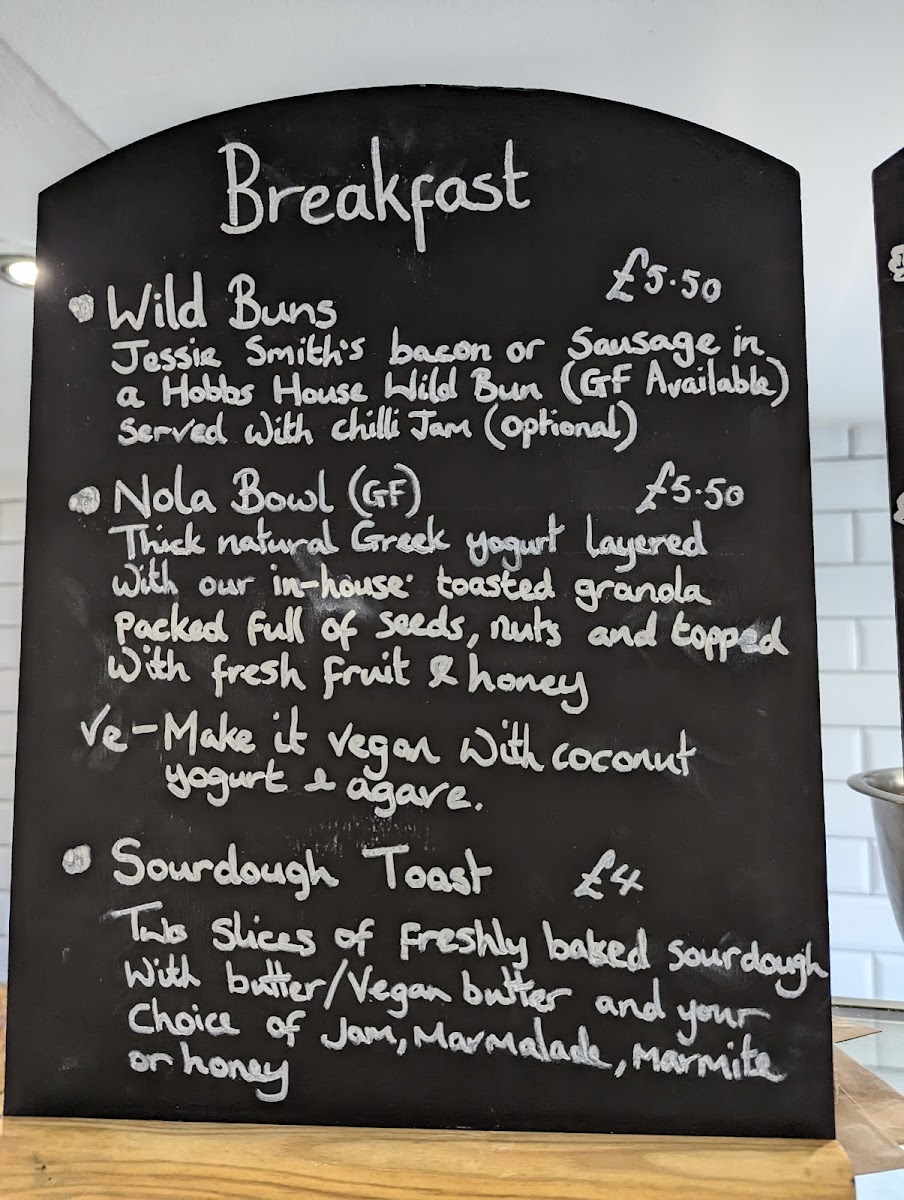 Breakfast
Wild Buns £5.50
Jessie Smith's bacon or Sausage in
a Hobbs House Wild Bun (GF Available)
Served with chilli Jam (optional)
Nola Bowl (GF) £5.50
Thick natural Greek yogurt layered
with our in-house toasted granola
packed full of seeds, nuts and topped
with fresh fruit & honey
Ve-Make it vegan with coconut
yogurt & agave.
Sourdough Toast £4
Two slices of freshly baked sourdough
with butter/Vegan butter and your
choice of Jam, Marmalade, Marmite
or honey